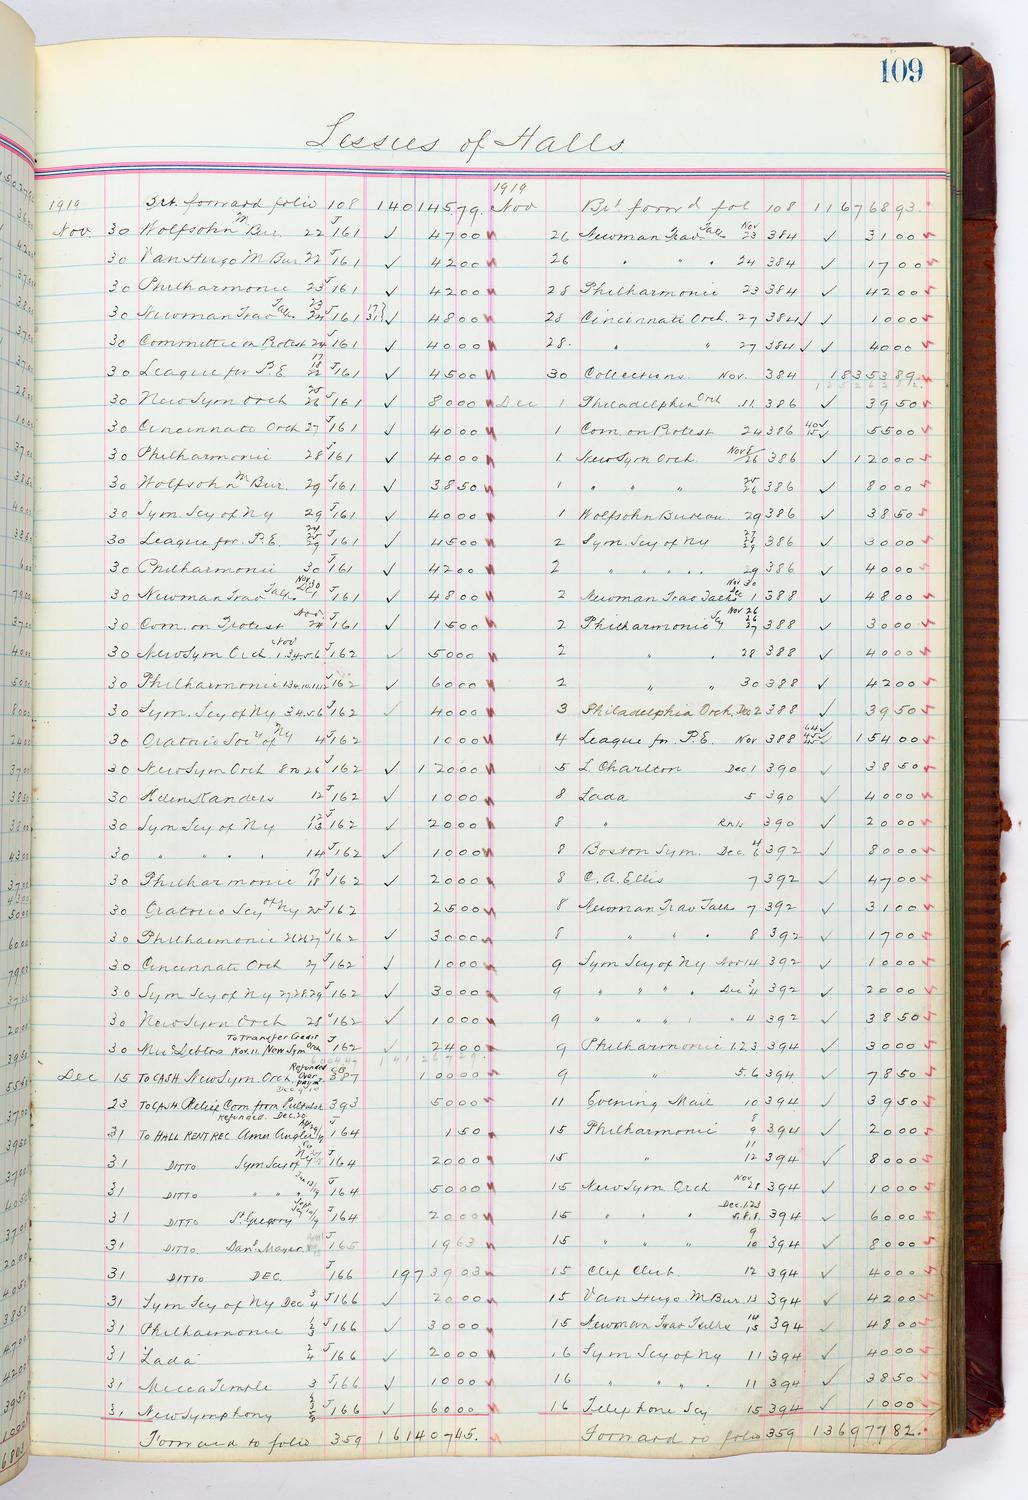 109
Lessees of Halls
1919 Brt. forward folio 108 14014579.
Nov. 30 Wolfsohn M Bur. 22 J161 ✓ 4700
30 Van Hugo M Bur 22 J161 ✓ 4200
30 Philharmonic 23 J161 ✓ 4200
30 Newman Trav Talks 23 24 J161 17 31 ✓ 4800
30 Committee on Protest 24 J161 ✓ 4000
30 League for P.E. 17 18 22 J161 ✓ 4500
30 New Sym Orch 25 26 J161 ✓ 8000
30 Cincinnati Orch 27 J161 ✓ 4000
30 Philharmonic 28 J161 ✓ 4000
30 Wolfsohn M Bur. 29 J161 ✓ 3850
30 Sym. Scy of NY 29 J161 ✓ 4000
30 League for. P.E. 24 25 29 J161 ✓ 4500
30 Philharmonic 30 J161 ✓ 4200
30 Newman Trav Talks Nov 30 Dec 1 J161 ✓ 4800
30 Com. on Protest Nov 24 J161 ✓ 1500
30 New Sym Orch. Nov 1 3.4.5.6 J162 ✓ 5000
30 Philharmonic J162 ✓ 6000
30 Sym. Scy of NY 3.4.5.6 J162 ✓ 4000
30 Oratorio Socy of NY 4 J162 1000
30 New Sym Orch 8 to 26 J162 ✓ 12000
30 Helen Standers 12 J162 ✓ 1000
30 Sym Scy of NY 12 13 J162 ✓ 2000
30 " " " " 14 J162 ✓ 1000
30 Philharmonic 17 18 J162 ✓ 2000
30 Oratorio Scy of NY 25 J162 2500
30 Philharmonic J162 ✓ 3000
30 Cincinnati Orch 27 J162 ✓ 1000
30 Sym Scy of NY 27 28 29 J162 ✓ 3000
30 New Sym Orch 28 J162 ✓ 1000
30 Misc Debtors To Transfer Credit Nov. 11 New Sym Orch J162 ✓ 2400
Dec 15 To CASH New Sym. Orch. Refunded Over payt CB 387 10000
23 To CASH Relief Com from Refunded. Dec. 20 393 5000
31 To HALL RENT REC Amer J164 150
31 DITTO Sym Scy of NY J164 2000
31 DITTO " " " J164 5000
31 DITTO St. Gregory Scy J164 2000
31 DITTO. Danl. Mayer J165 1963
31 DITTO DEC. J166 1973903
31 Sym Scy of NY Dec 3 4 J166 ✓ 2000
31 Philharmonic J166 ✓ 3000
31 Lada 2 4 J166 ✓ 2000
31 Mecca Temple 3 J166 ✓ 1000
31 New Symphony J166 ✓ 6000
Forward to folio 359 16140745.
1919
Nov Brt forwd fol 108 11676893.
26 Newman Trav Talks Nov 23 384 ✓ 3100
26 " " " 24 384 ✓ 1700
28 Philharmonic 23 384 ✓ 4200
28 Cincinnati Orch. 27 384 ✓ 1000
28. " " 27 384 ✓ ✓ 4000
30 Collections. Nov. 384 1835389.
Dec 1 Philadelphia Orch .11 386 ✓ 3950
1 Com. on Protest 24 386 40✓ 15✓ 5500
1 New Sym Orch. Nov 8/26 386 ✓ 12000
1 " " " 25 26 386 ✓ 8000
1 Wolfsohn Bureau. 29 386 ✓ 3850
2 Sym. Scy of NY 27 28 29 386 ✓ 3000
2 " " " " 29 386 ✓ 4000
2 Newman Trav Talks Nov 30 Dec 1 388 ✓ 4800
2 Philharmonic Scy Nov 26 26 27 388 ✓ 3000
2 " " 28 388 ✓ 4000
2 " " 30 388 ✓ 4200
3 Philadelphia Orch, Dec 2 388 ✓ 3950
4 League for. P.E. Nov 388 64✓ 45✓ 45✓ 15400
5 L. Charlton Dec 1 390 ✓ 3850
8 Lada 5 390 ✓ 4000
8 " 390 ✓ 2000
8 Boston Sym. Dec. 4 6 392 ✓ 8000
8 C. A. Ellis 7 392 ✓ 4700
8 Newman Trav Talk 7 392 ✓ 3100
8 " " " 8 392 ✓ 1700
9 Sym Scy of NY Nov 14 392 ✓ 1000
9 " " " " Dec 3 4 392 ✓ 2000
9 " " " " " 4 392 ✓ 3850
9 Philharmonic 1.2.3 394 ✓ 3000
9 " 5.6 394 ✓ 7850
11 Evening Mail 10 394 ✓ 3950
15 Philharmonic 8 9 11 394 ✓ 2000
15 " 12 394 ✓ 8000
15 New Sym Orch Nov 28 394 ✓ 1000
15 " " " Dec. 1.2.3 5.8.8. 394 ✓ 6000
15 " " " 9 10 394 ✓ 8000
15 Clef Club. 12 394 ✓ 4000
15 Van Hugo M Bur 13 394 ✓ 4200
15 Newman Trav Talks 14 15 394 ✓ 4800
16 Sym Scy of NY 11 394 ✓ 4000
16 " " " " 11 394 ✓ 3850
16 Telephone Scy 15 394 ✓ 1000
Forward to folio 359 13697782.